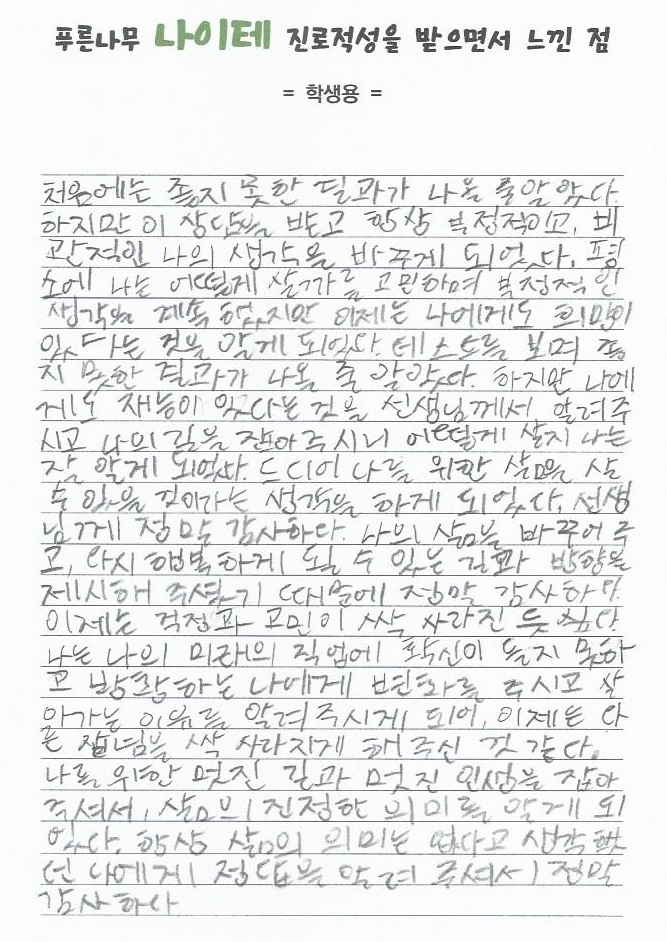 푸른나무 나이테 진로적성을 받으면서 느낀 점
= 학생용 =
처음에는 좋지 못한 결과가 나올 줄 알았다.
하지만 이 상담을 받고 항상 부정적이고, 비
관적인 나의 생각을 바꾸게 되었다. 평
소에 나는 어떻게 살까를 고민하며 부정적인
생각을 계속 했지만 이제는 나에게도 희망이
있다는 것을 알게 되었다. 테스트를 보며 좋
지 못한 결과가 나올 줄 알았다. 하지만 나에
게도 재능이 있다는 것을 선생님께서 알려주
시고 나의 길을 잡아주시니 어떻게 살지 나는
잘 알게 되었다. 드디어 나를 위한 삶을 살
수 있을 것이라는 생각을 하게 되었다. 선생
님께 정말 감사하다. 나의 삶을 바꾸어 주
고, 다시 행복하게 될 수 있는 길과 방향을
제시해 주셨기 때문에 정말 감사하다.
이제는 걱정과 고민이 싹 사라진 듯 싶다
나는 나의 미래의 직업에 확신이 들지 못하
고 방황하는 나에게 변화를 주시고 살
아가는 이유를 알려주시게 되어, 이제는 다
른 잡념을 싹 사라지게 해주신 것 같다.
나를 위한 멋진 길과 멋진 인생을 잡아
주셔서, 삶의 진정한 의미를 알게 되
었다. 항상 삶의 의미는 없다고 생각했
던 나에게 정답을 알려 주셔서 정말
감사하다